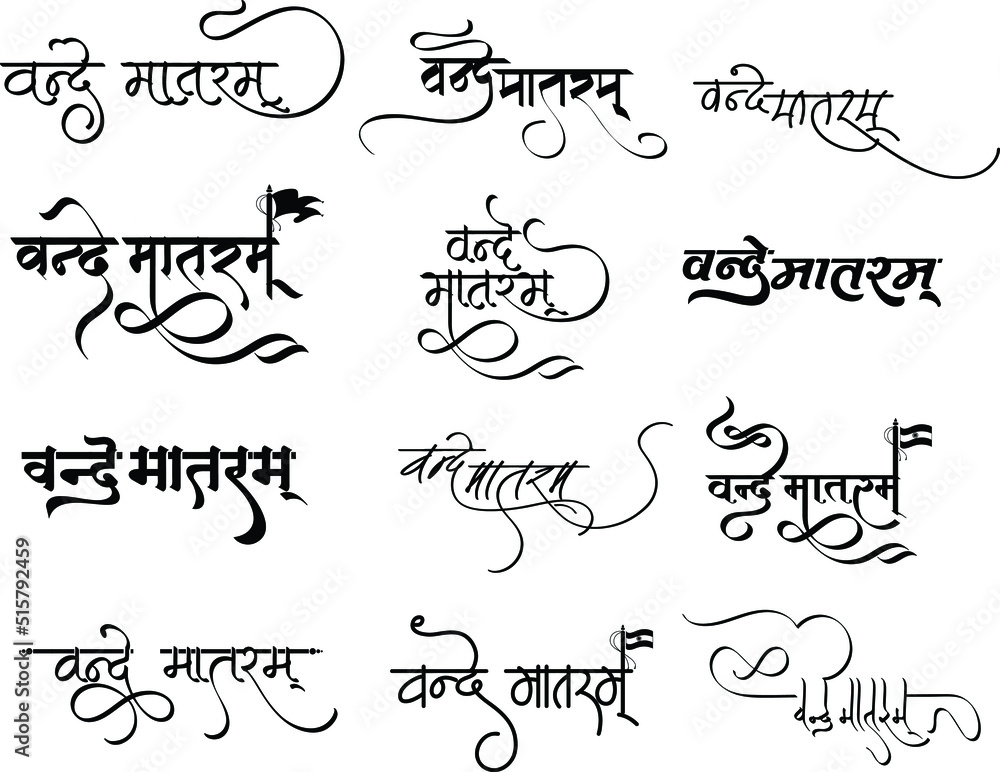 वन्दे मातरम्
वन्दे मातरम्
वन्दे मातरम्
वन्दे मातरम्
वन्दे
मातरम्
वन्दे मातरम्
वन्दे मातरम्
वन्दे मातरम
वन्दे मातरम्
वन्दे मातरम्
वन्दे मातरम्
वन्दे मातरम्
Adobe Stock | #515792459